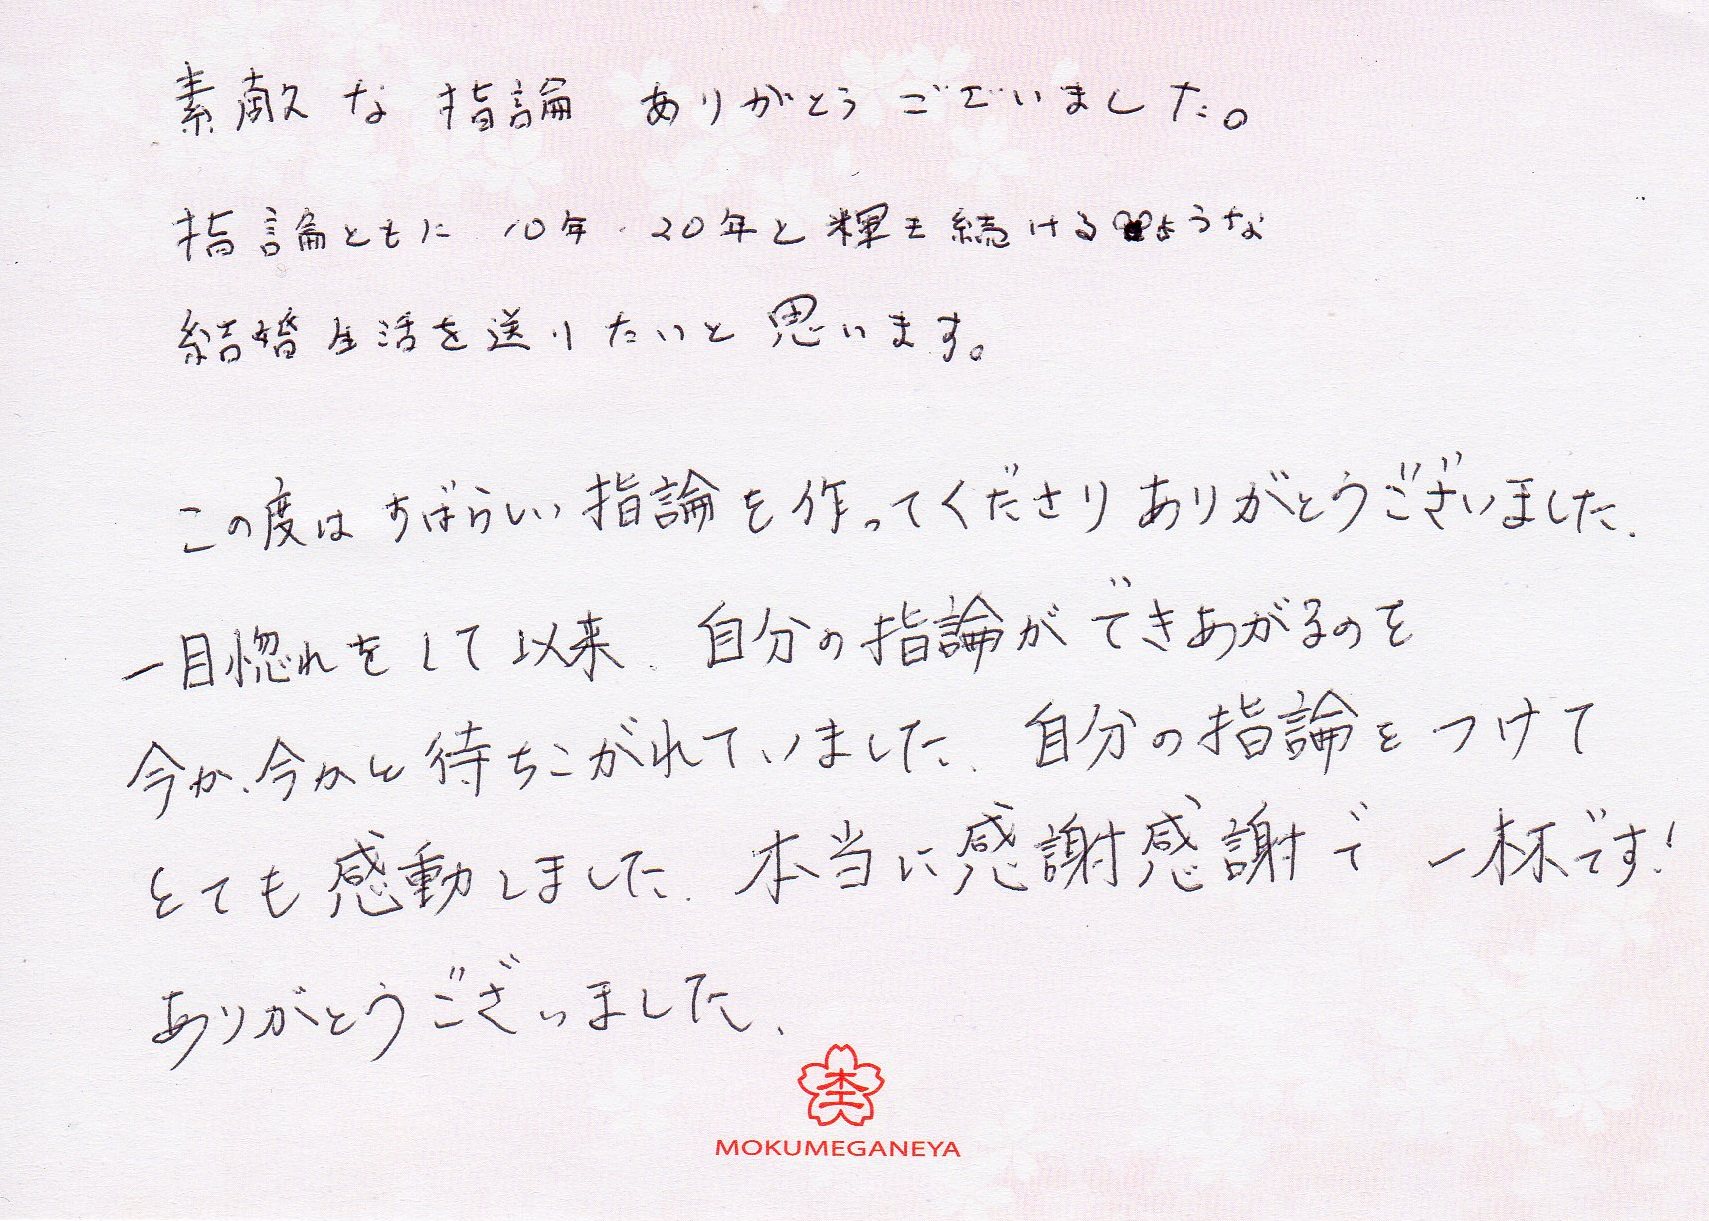 素敵な指論 ありがとうございました。
指論ともに 10年.20年と輝き続けるような
結婚生活を送りたいと思います。
この度はすばらしい指論を作ってくださりありがとうございました.
一目惚れをして以来. 自分の指論ができあがるのを
今か、今かと待ちこがれていました. 自分の指論をつけて
とても感動しました. 本当に感謝感謝で一杯です!
ありがとうございました.
杢
MOKUMEGANEYA